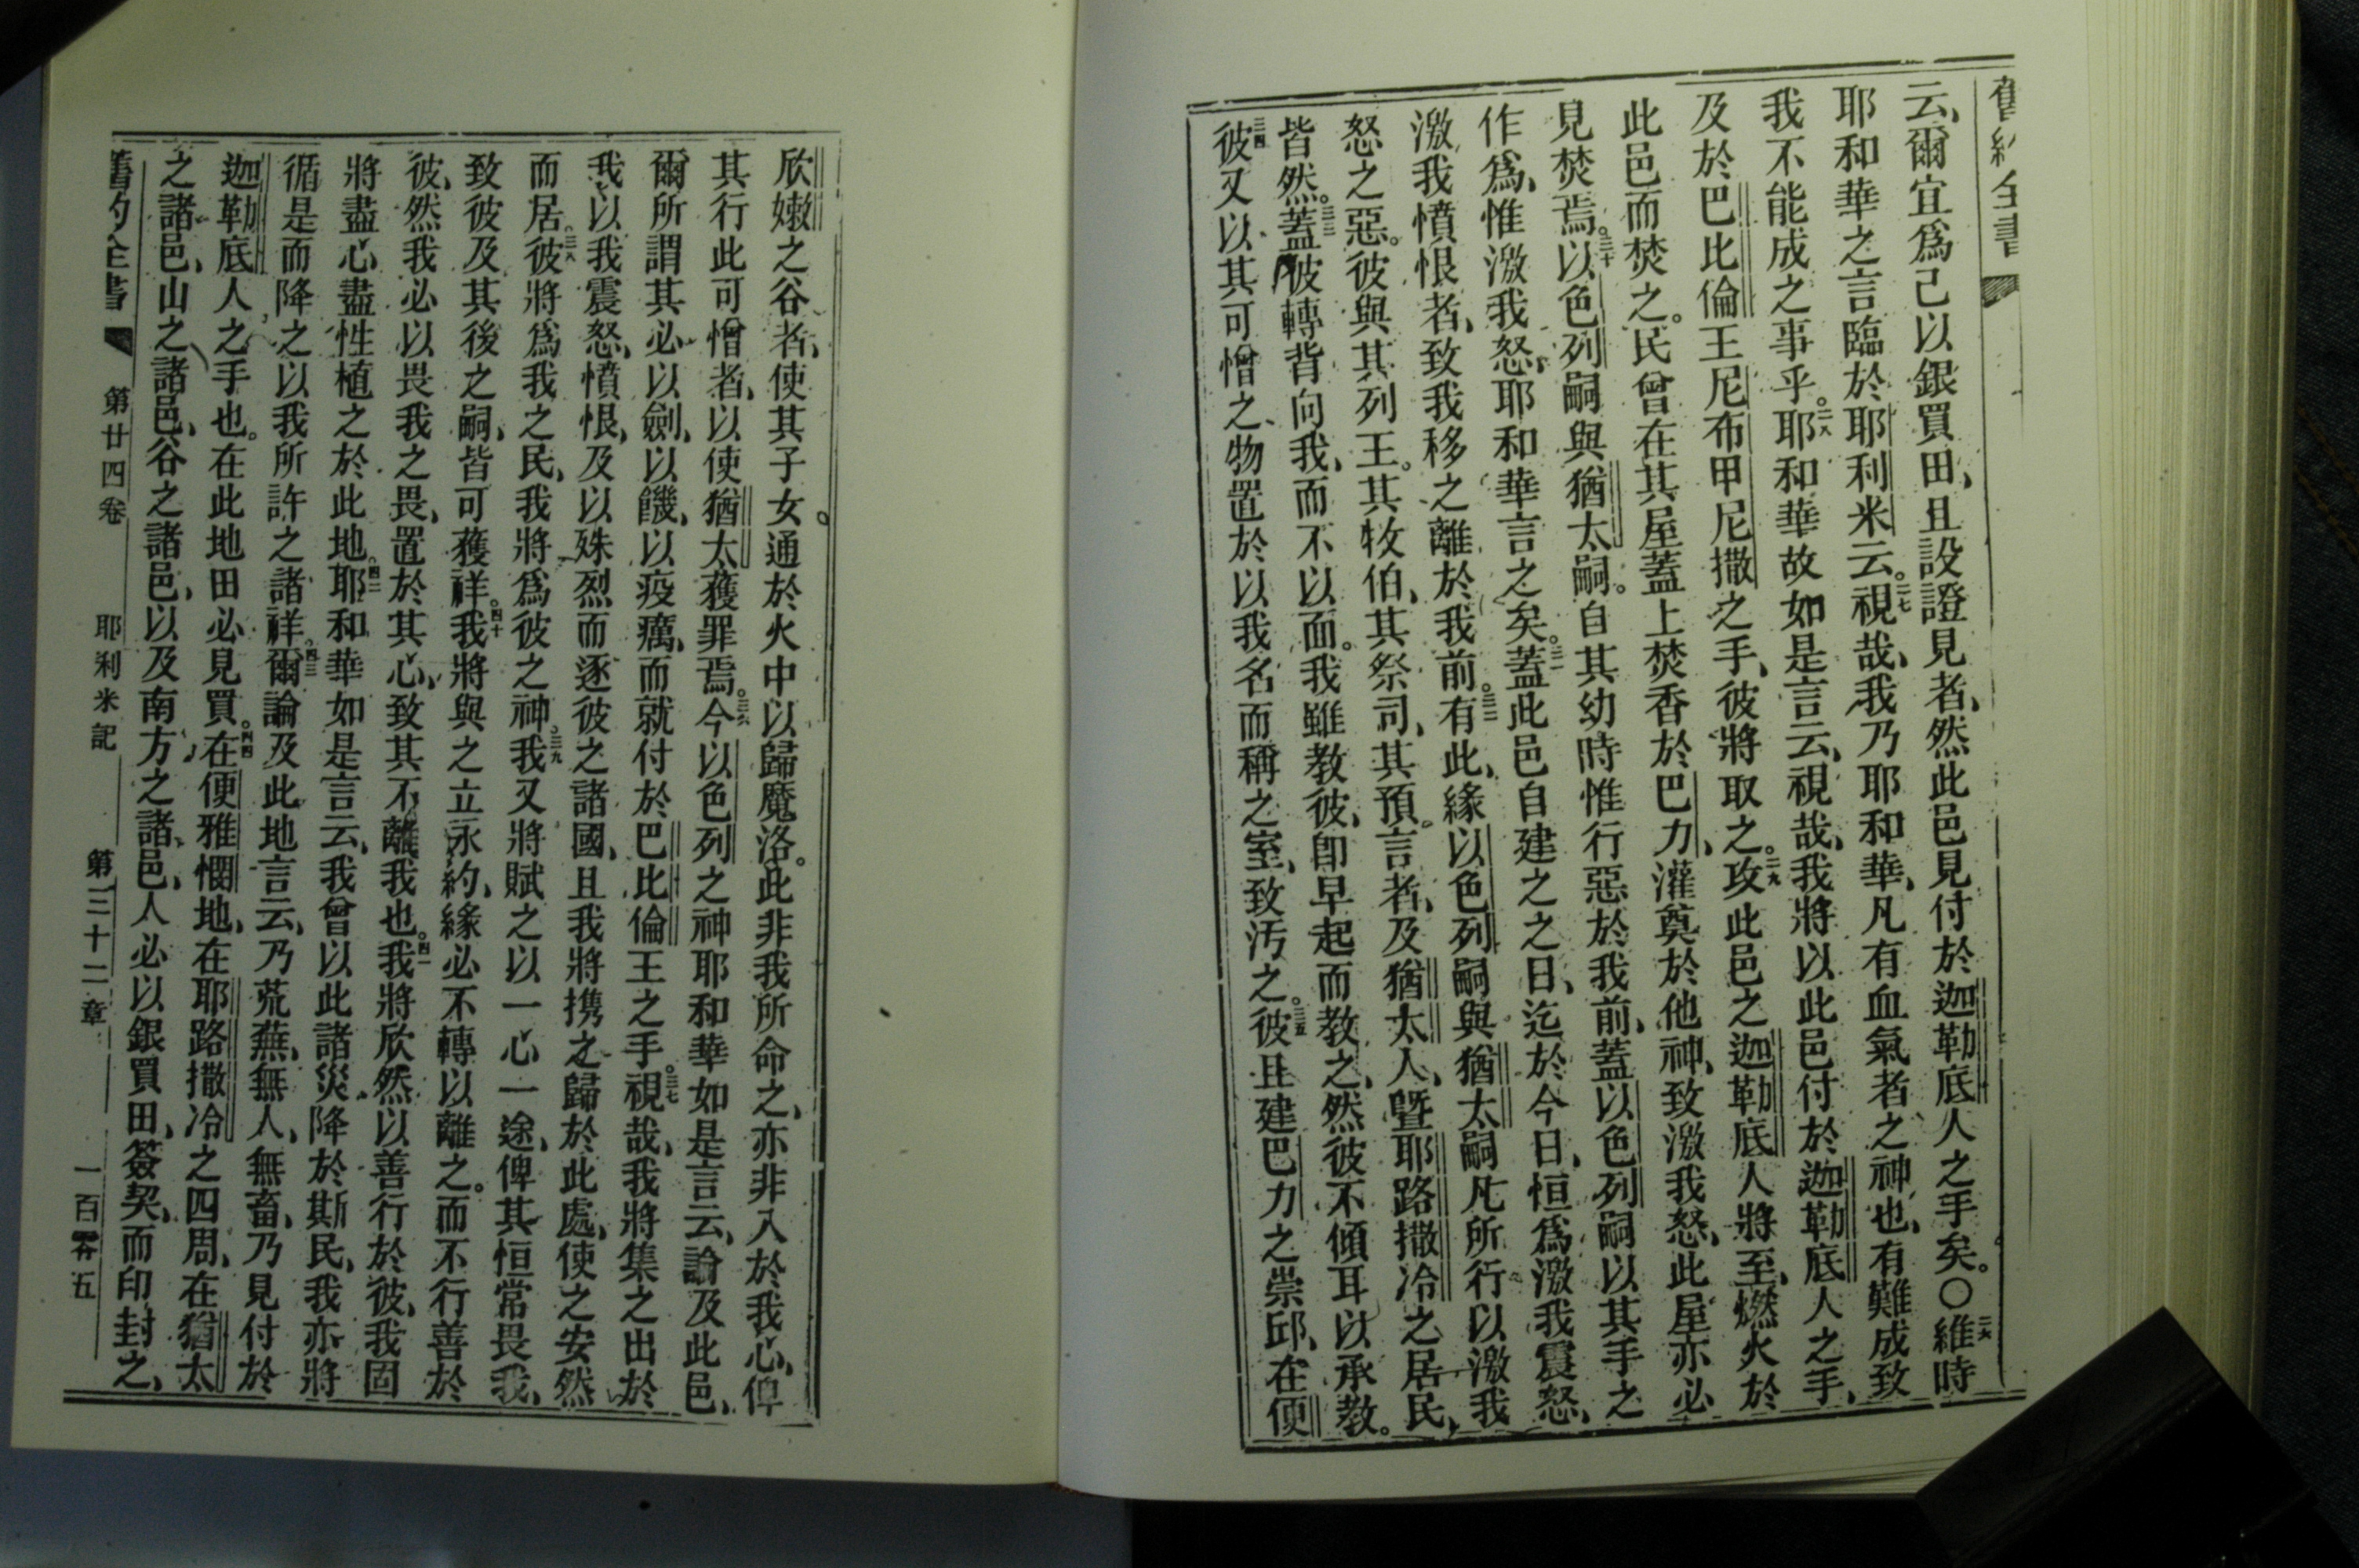 舊約全書
云、爾宜爲己以銀買田、且設證見者、然此邑見付於迦勒底人之手矣。〇二六維時
耶和華之言臨於耶利米云。二七視哉、我乃耶和華、凡有血氣者之神也、有難成致
我不能成之事乎。二八耶和華故如是言云、視哉、我將以此邑付於迦勒底人之手、
及於巴比倫王尼布甲尼撒之手、彼將取之。二九攻此邑之迦勒底人將至、燃火於
此邑而焚之。民曾在其屋蓋上焚香於巴力、灌奠於他神、致激我怒、此屋亦必
見焚焉。三十以色列嗣與猶太嗣。自其幼時惟行惡於我前、蓋以色列嗣以其手之
作爲、惟激我怒、耶和華言之矣。三一蓋此邑自建之之日、迄於今日、恒爲激我震怒、
激我憤恨者、致我移之離於我前。三二有此、緣以色列嗣與猶太嗣凡所行以激我
怒之惡。彼與其列王。其牧伯、其祭司、其預言者、及猶太人、曁耶路撒冷之居民、
皆然。三三蓋彼轉背向我、而不以面。我雖教彼、卽早起而教之、然彼不傾耳以承教。
三四彼又以其可憎之物置於以我名而稱之室、致汚之。三五彼且建巴力之崇邱、在便
欣嫩之谷者、使其子女通於火中以歸魔洛。此非我所命之、亦非入於我心、俾
其行此可憎者、以使猶太獲罪焉。三六今以色列之神耶和華如是言云、論及此邑、
爾所謂其必以劍、以饑、以疫癘、而就付於巴比倫王之手。三七視哉、我將集之出於
我以我震怒、憤恨、及以殊烈而逐彼之諸國、且我將携之歸於此處、使之安然
而居。三八彼將爲我之民、我將爲彼之神。三九我又將賦之以一心一途、俾其恒常畏我、
致彼及其後之嗣、皆可獲祥。四十我將與之立永約、緣必不轉以離之。而不行善於
彼、然我必以畏我之畏、置於其心、致其不離我也。四一我將欣然以善行於彼、我固
將盡心盡性植之於此地。四二耶和華如是言云、我曾以此諸災降於斯民、我亦將
循是而降之以我所許之諸祥。四三爾論及此地言云、乃荒蕪、無人、無畜、乃見付於
迦勒底人之手也。在此地田必見買。四四在便雅憫地、在耶路撒冷之四周、在猶太
之諸邑、山之諸邑、谷之諸邑、以及南方之諸邑、人必以銀買田、簽契、而印封之、
舊約全書 第廿四卷 耶利米記 第三十二章 一百零五